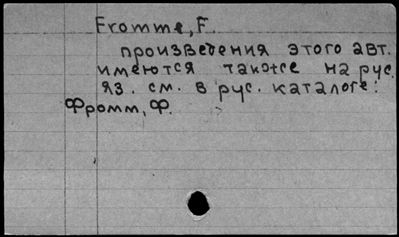 Fromme, F.
произведения этого авт.
имеются также на рус.
яз. см. в рус. каталоге:
Фромм, Ф.